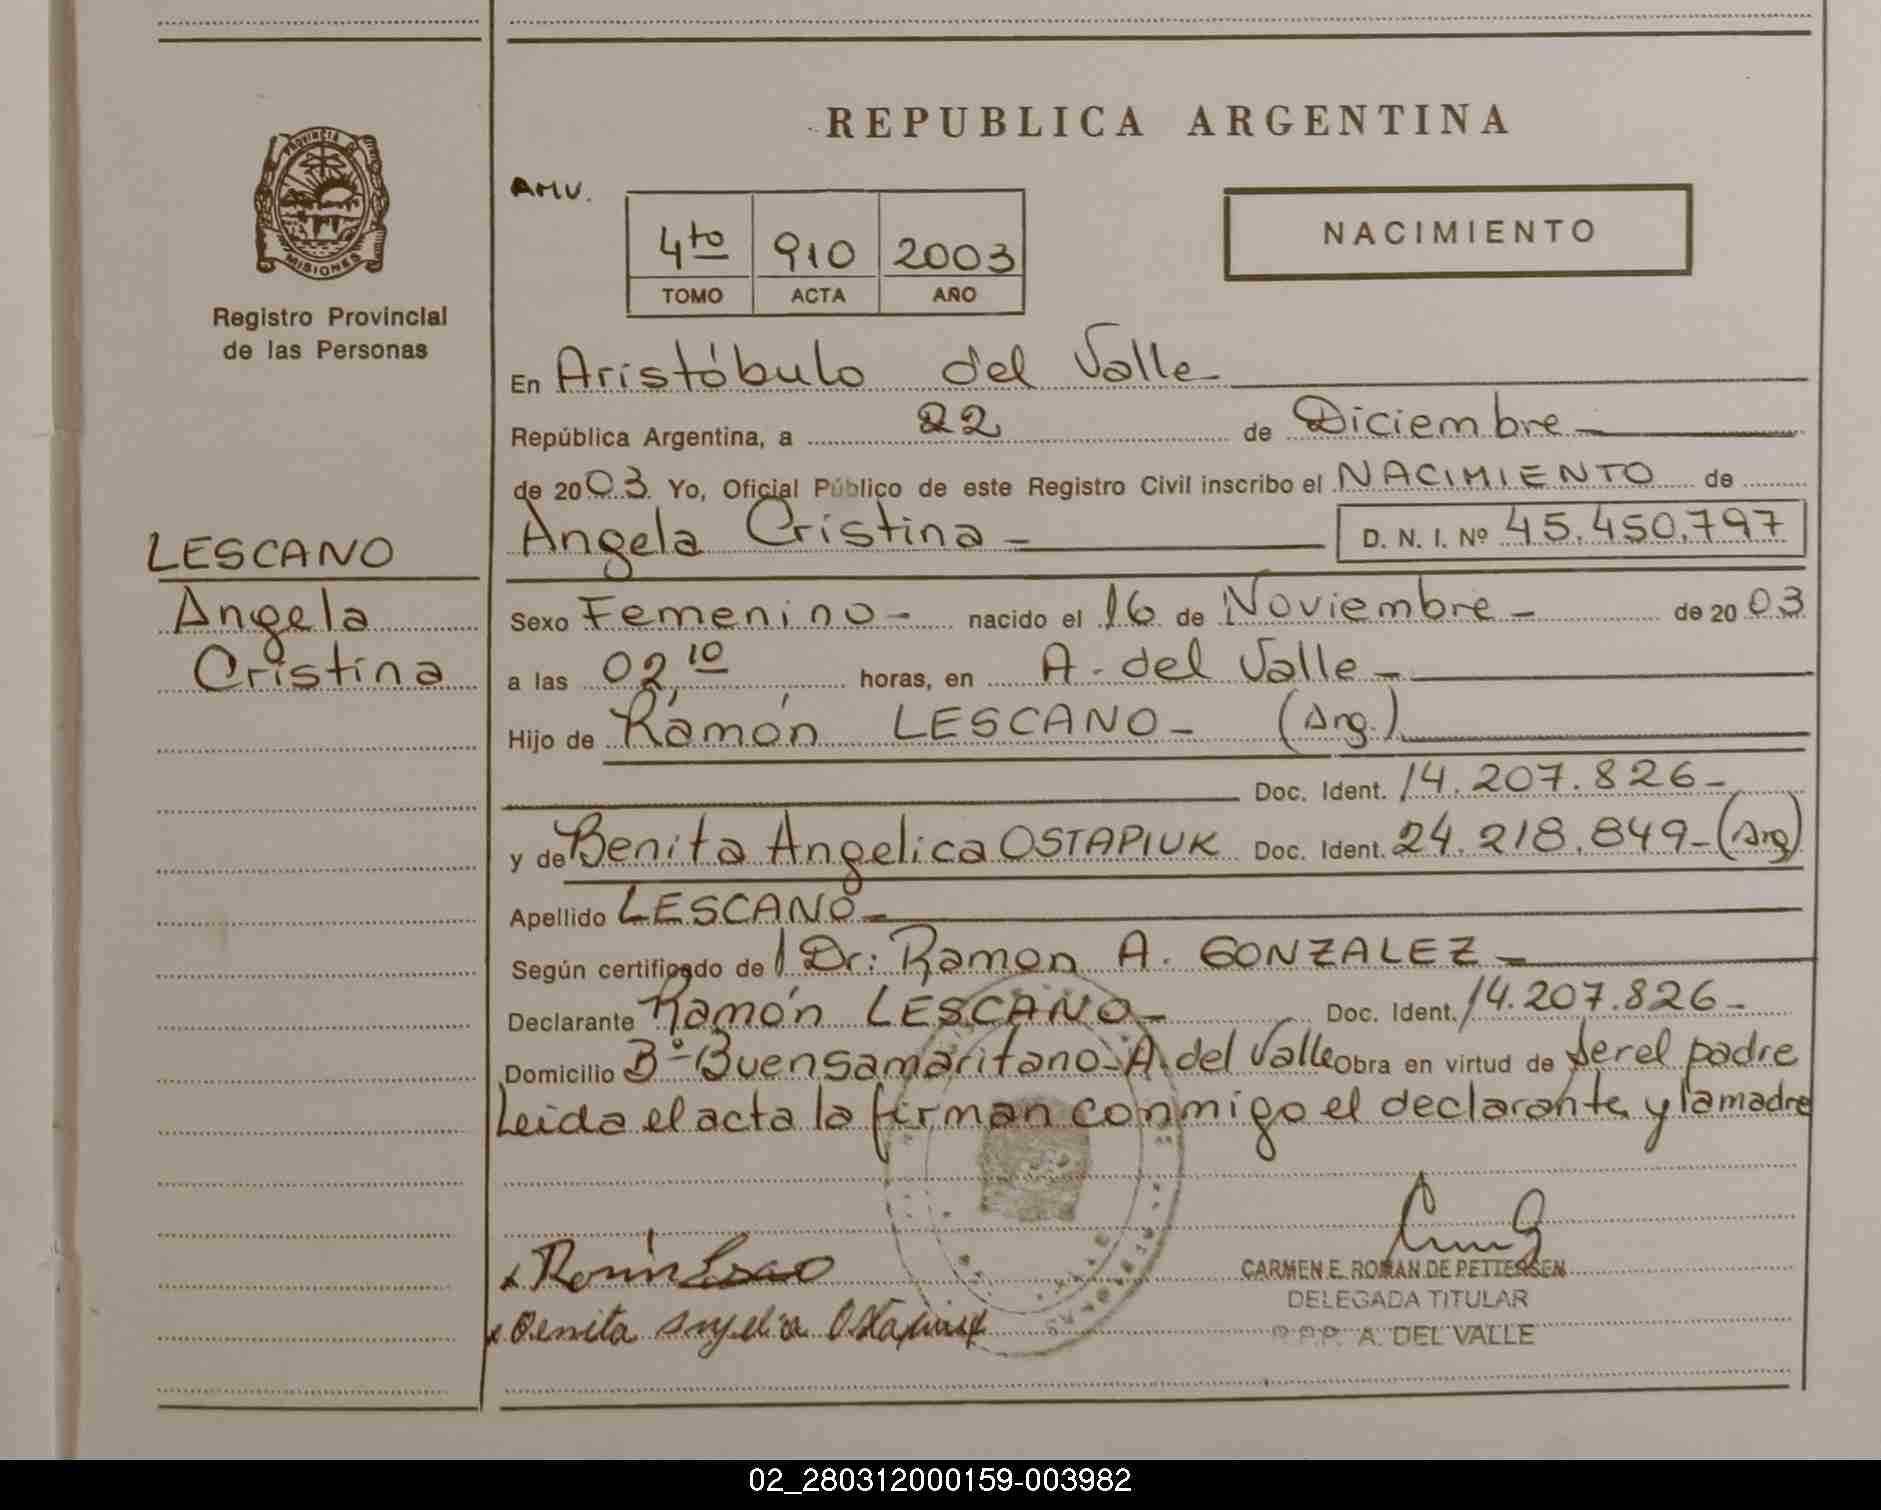 PROVINCIA DE
MISIONES
Registro Provincial
de las Personas
LESCANO
Angela
Cristina
REPUBLICA ARGENTINA
AMV.
4to 910 2003
TOMO ACTA AÑO
NACIMIENTO
En Aristóbulo del Valle
República Argentina, a 22 de Diciembre
de 2003. Yo, Oficial Público de este Registro Civil inscribo el NACIMIENTO de
Angela Cristina D. N. I. Nº 45.450.797
Sexo Femenino nacido el 16 de Noviembre de 2003
a las 02,10 horas, en A. del Valle
Hijo de Ramón LESCANO (Arg.)
Doc. Ident. 14.207.826
y de Benita Angelica OSTAPIUK Doc. Ident. 24.218.849 (Arg)
Apellido LESCANO
Según certificado del Dr: Ramon A. GONZALEZ
Declarante Ramón LESCANO Doc. Ident. 14.207.826
Domicilio Bº Buen samaritano-A. del Valle Obra en virtud de ser el padre
Leida el acta la firman conmigo el declarante y la madre
Benita Angelica Ostapiuk
CARMEN E. ROMAN DE PETTERSEN
DELEGADA TITULAR
A. DEL VALLE
02_280312000159-003982